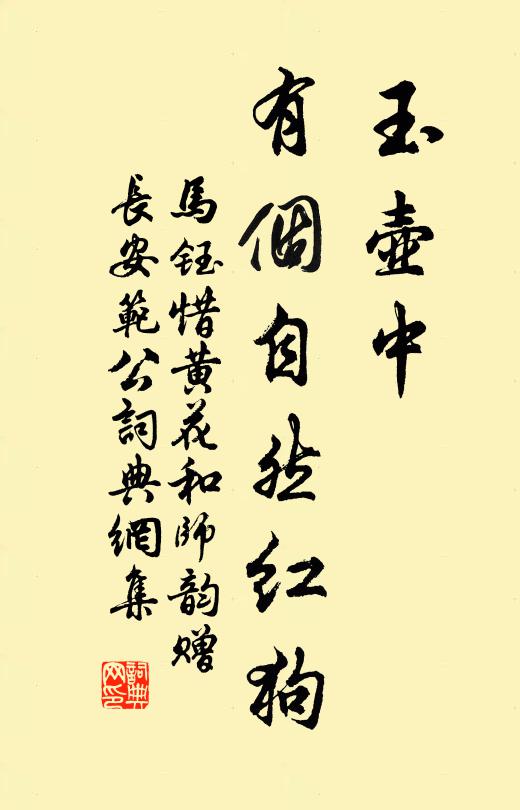 玉壺中
有個自然紅狗
馬鈺惜黄花和師韵贈
長安範公詞典網集
詞典網印